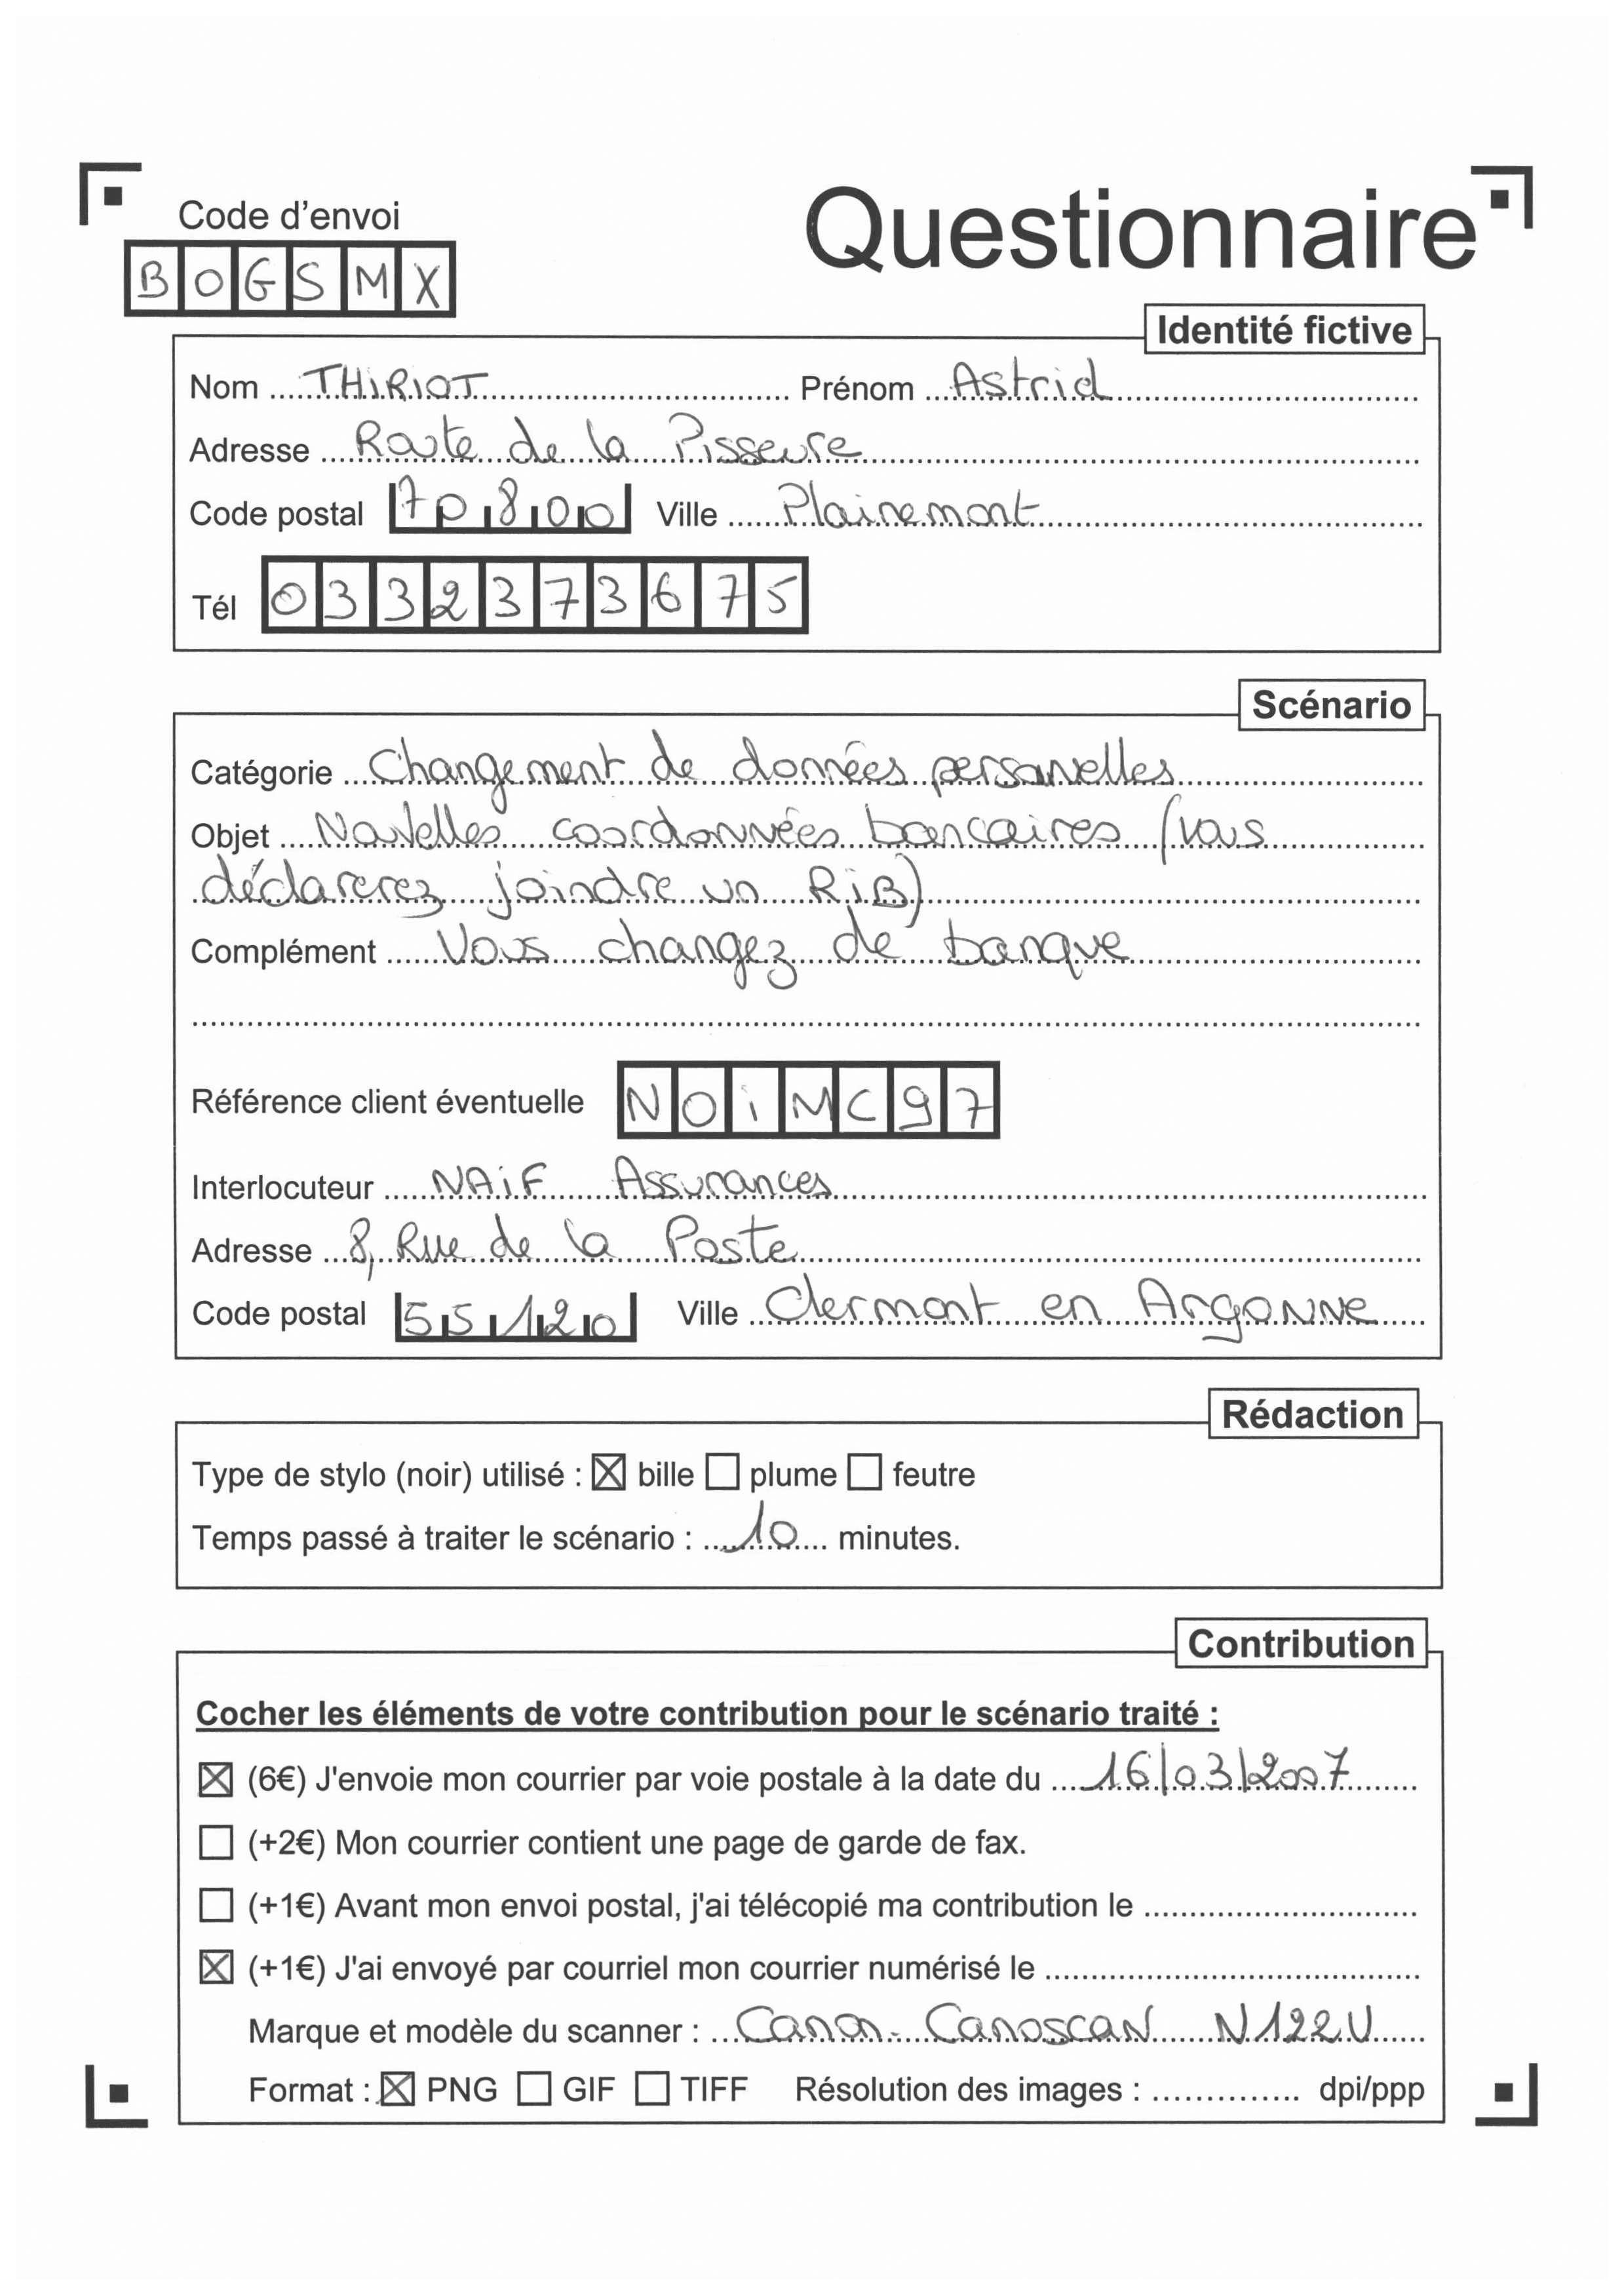 Code d'envoi
Questionnaire
BOGSMX
Identité fictive
Nom THiRiOT Prénom Astrid
Adresse Route de la Pisseure
Code postal 70800 Ville Plainemont
Tél 0332373675
Scénario
Catégorie Changement de données personnelles
Objet Nouvelles coordonnées bancaires (vous
déclarerez joindre un RiB)
Complément Vous changez de banque
Référence client éventuelle NOiMC97
Interlocuteur NAiF Assurances
Adresse 8, Rue de la Poste
Code postal 55120 Ville Clermont en Argonne
Rédaction
Type de stylo (noir) utilisé : ☒ bille ☐ plume ☐ feutre
Temps passé à traiter le scénario : 10 minutes.
Contribution
Cocher les éléments de votre contribution pour le scénario traité :
☒ (6€) J'envoie mon courrier par voie postale à la date du 16/03/2007
☐ (+2€) Mon courrier contient une page de garde de fax.
☐ (+1€) Avant mon envoi postal, j'ai télécopié ma contribution le
☒ (+1€) J'ai envoyé par courriel mon courrier numérisé le
Marque et modèle du scanner : Canon. Canoscan N122U
Format : ☒ PNG ☐ GIF ☐ TIFF Résolution des images : dpi/ppp